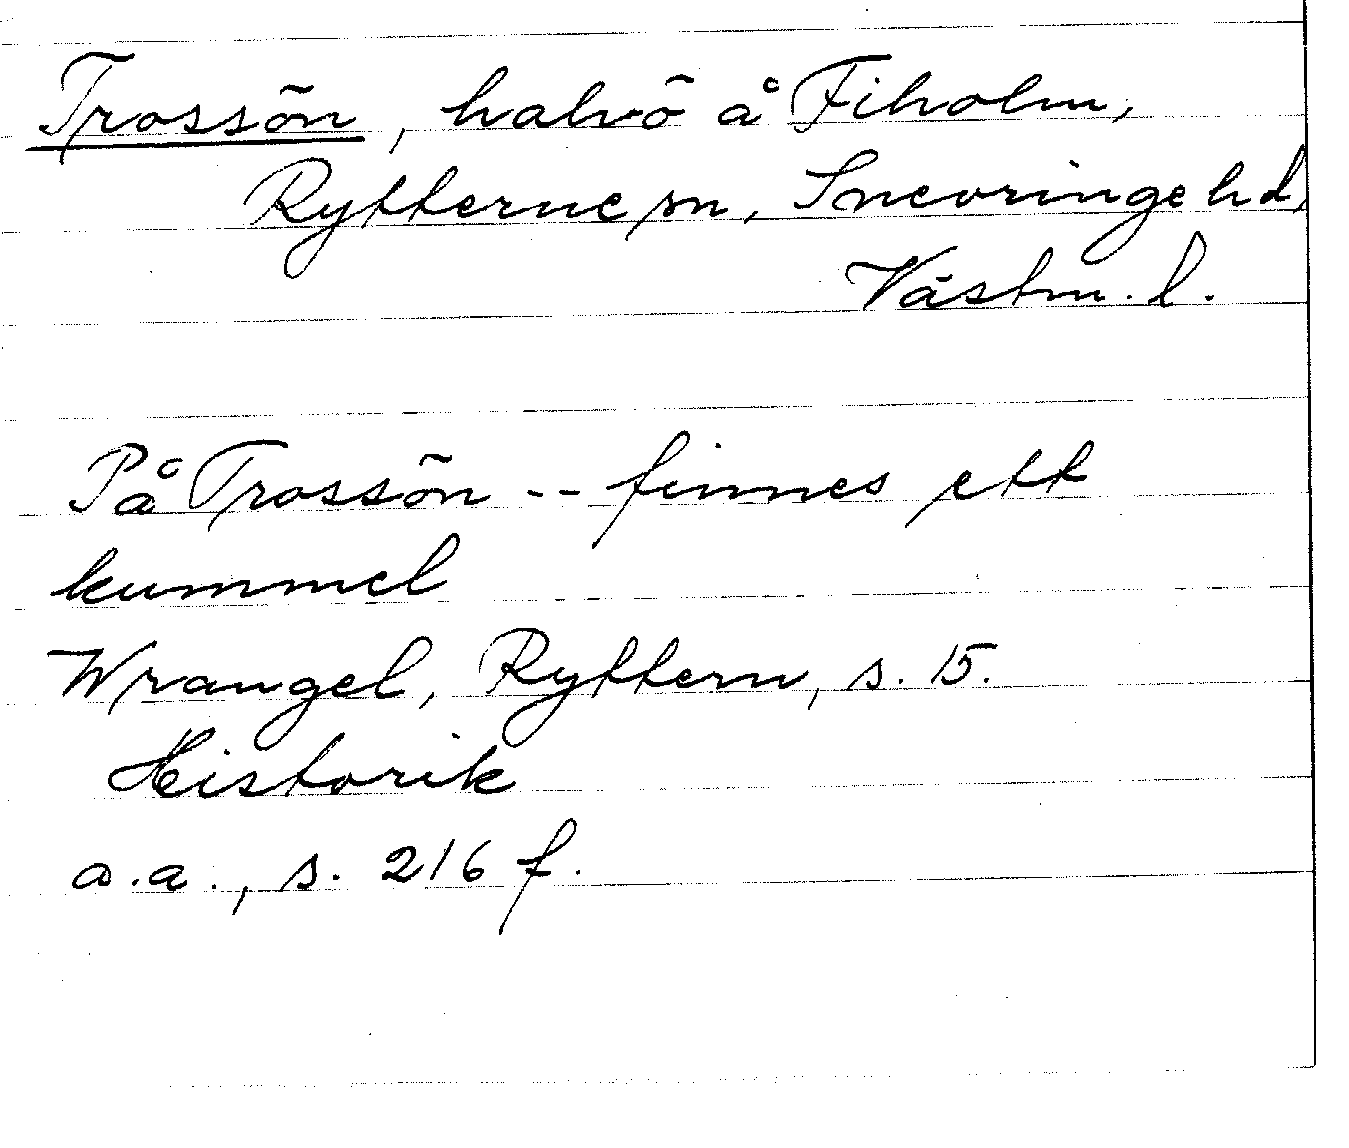 Trossön, halvö å Fiholm,
Rytterne sn, Snevringe hd,
Västm. l.
På Trossön -- finnes ett
kummel
Wrangel, Ryttern, s. 15.
Historik
a.a., s. 216 f.